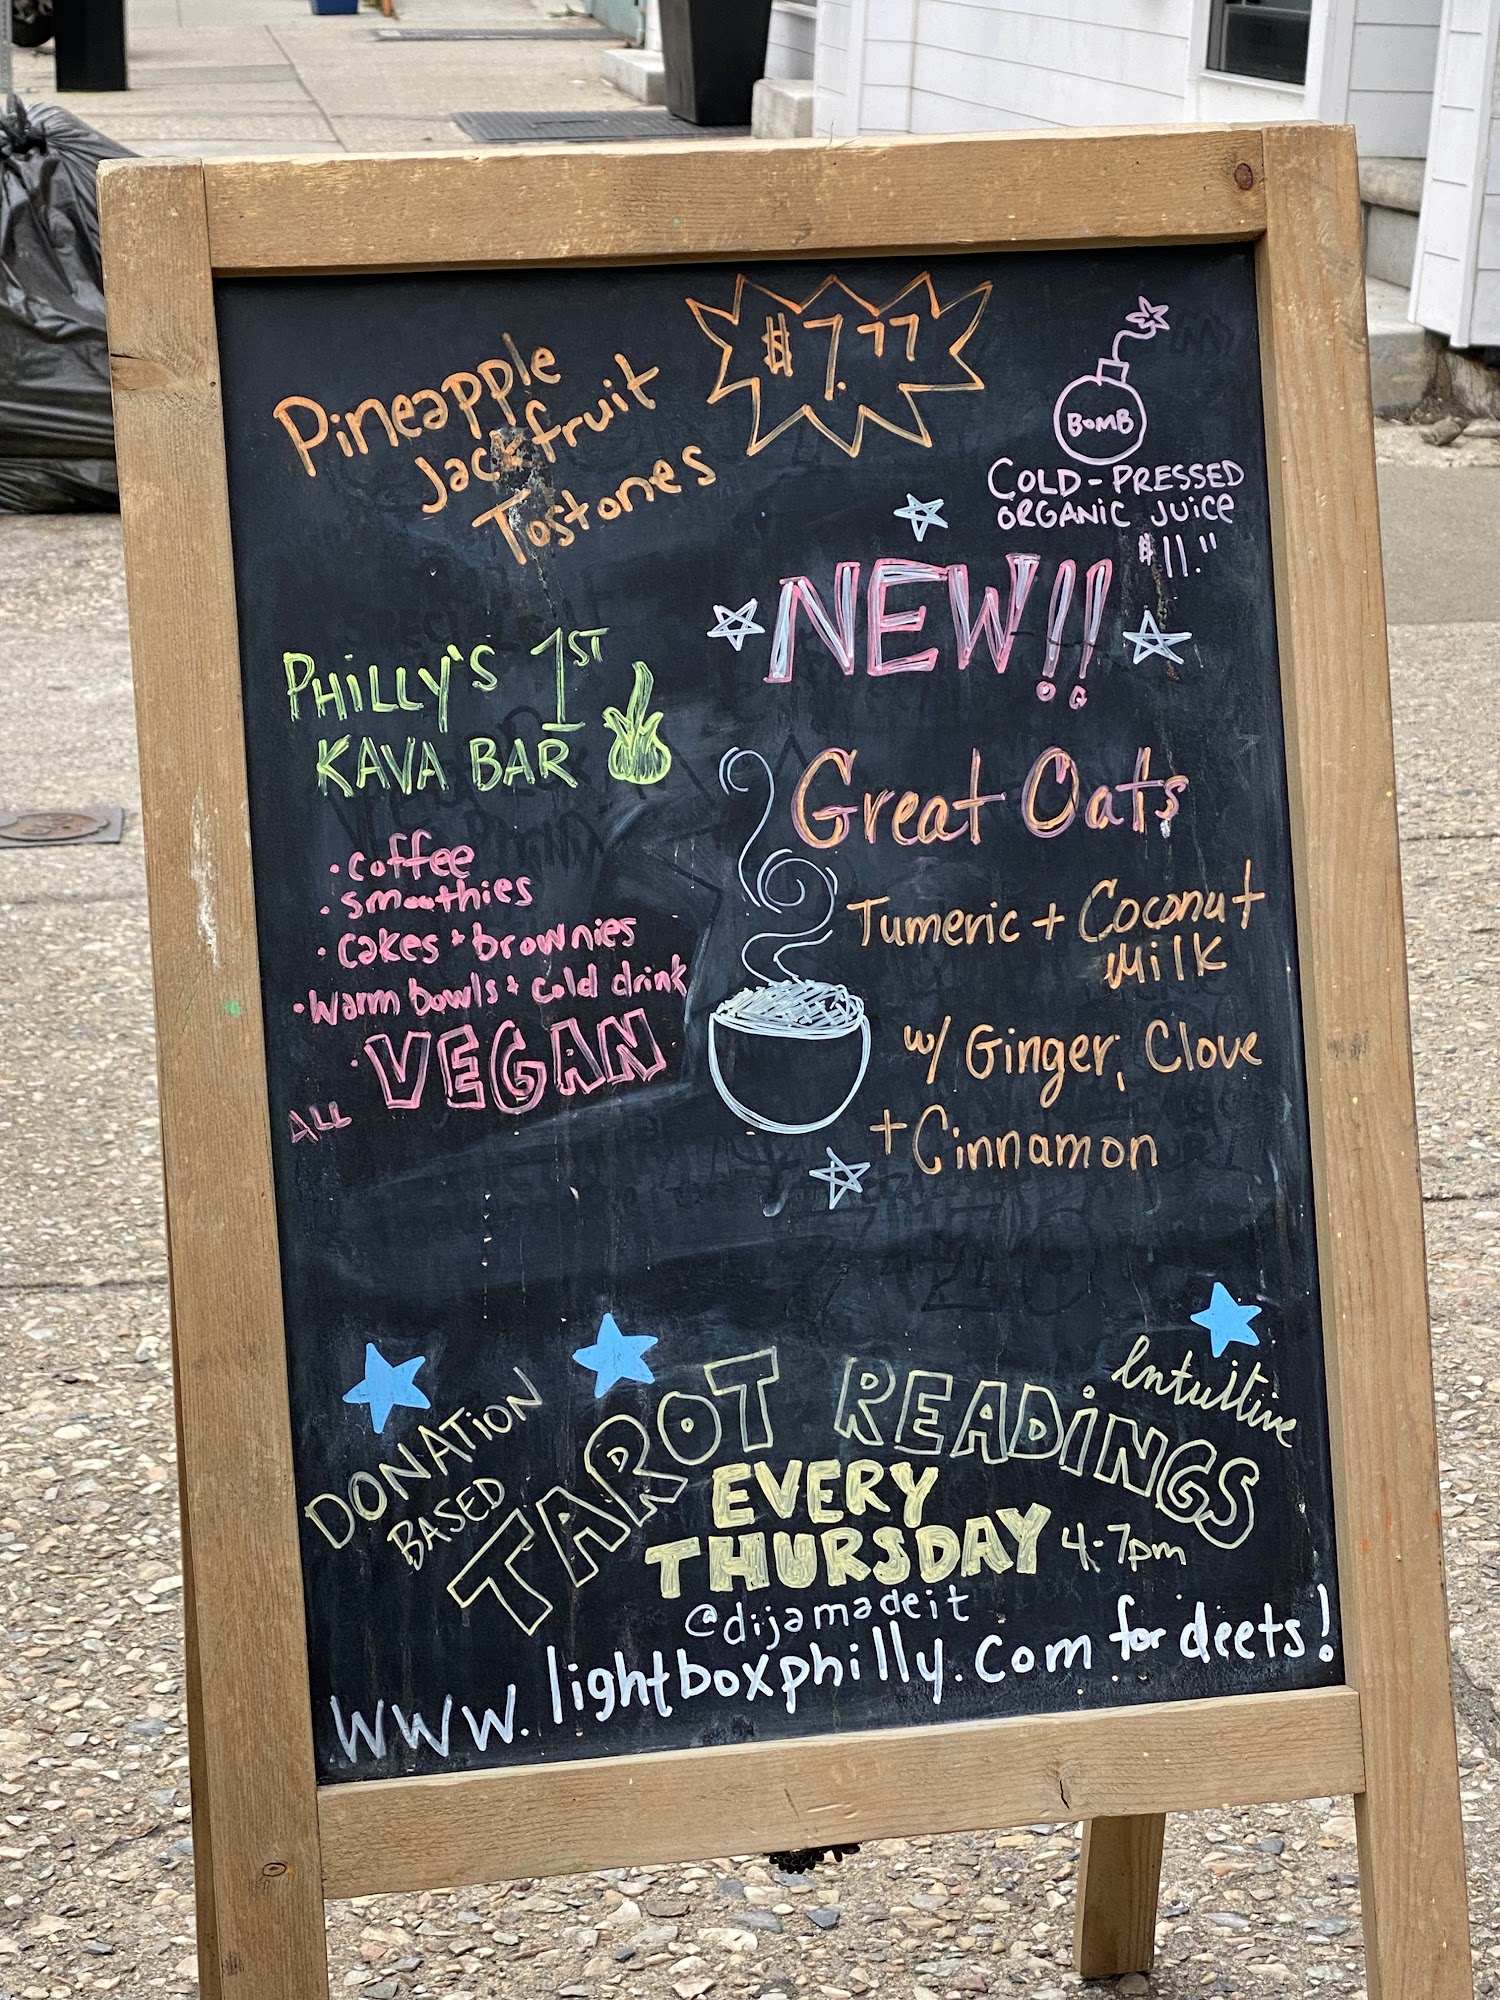 Pineapple
Jackfruit
Tostones
$7.77
BOMB
COLD-PRESSED
ORGANIC JUICE
$11."
NEW!!
PHILLY'S 1ST
KAVA BAR
• coffee
• smoothies
• cakes + brownies
• warm bowls + cold drink
• VEGAN
ALL
Great Oats
Tumeric + Coconut
Milk
w/ Ginger, Clove
+ Cinnamon
DONATION
BASED
TAROT READINGS
Intuitive
EVERY
THURSDAY 4-7pm
@dijamadeit
www.lightboxphilly.com for deets!